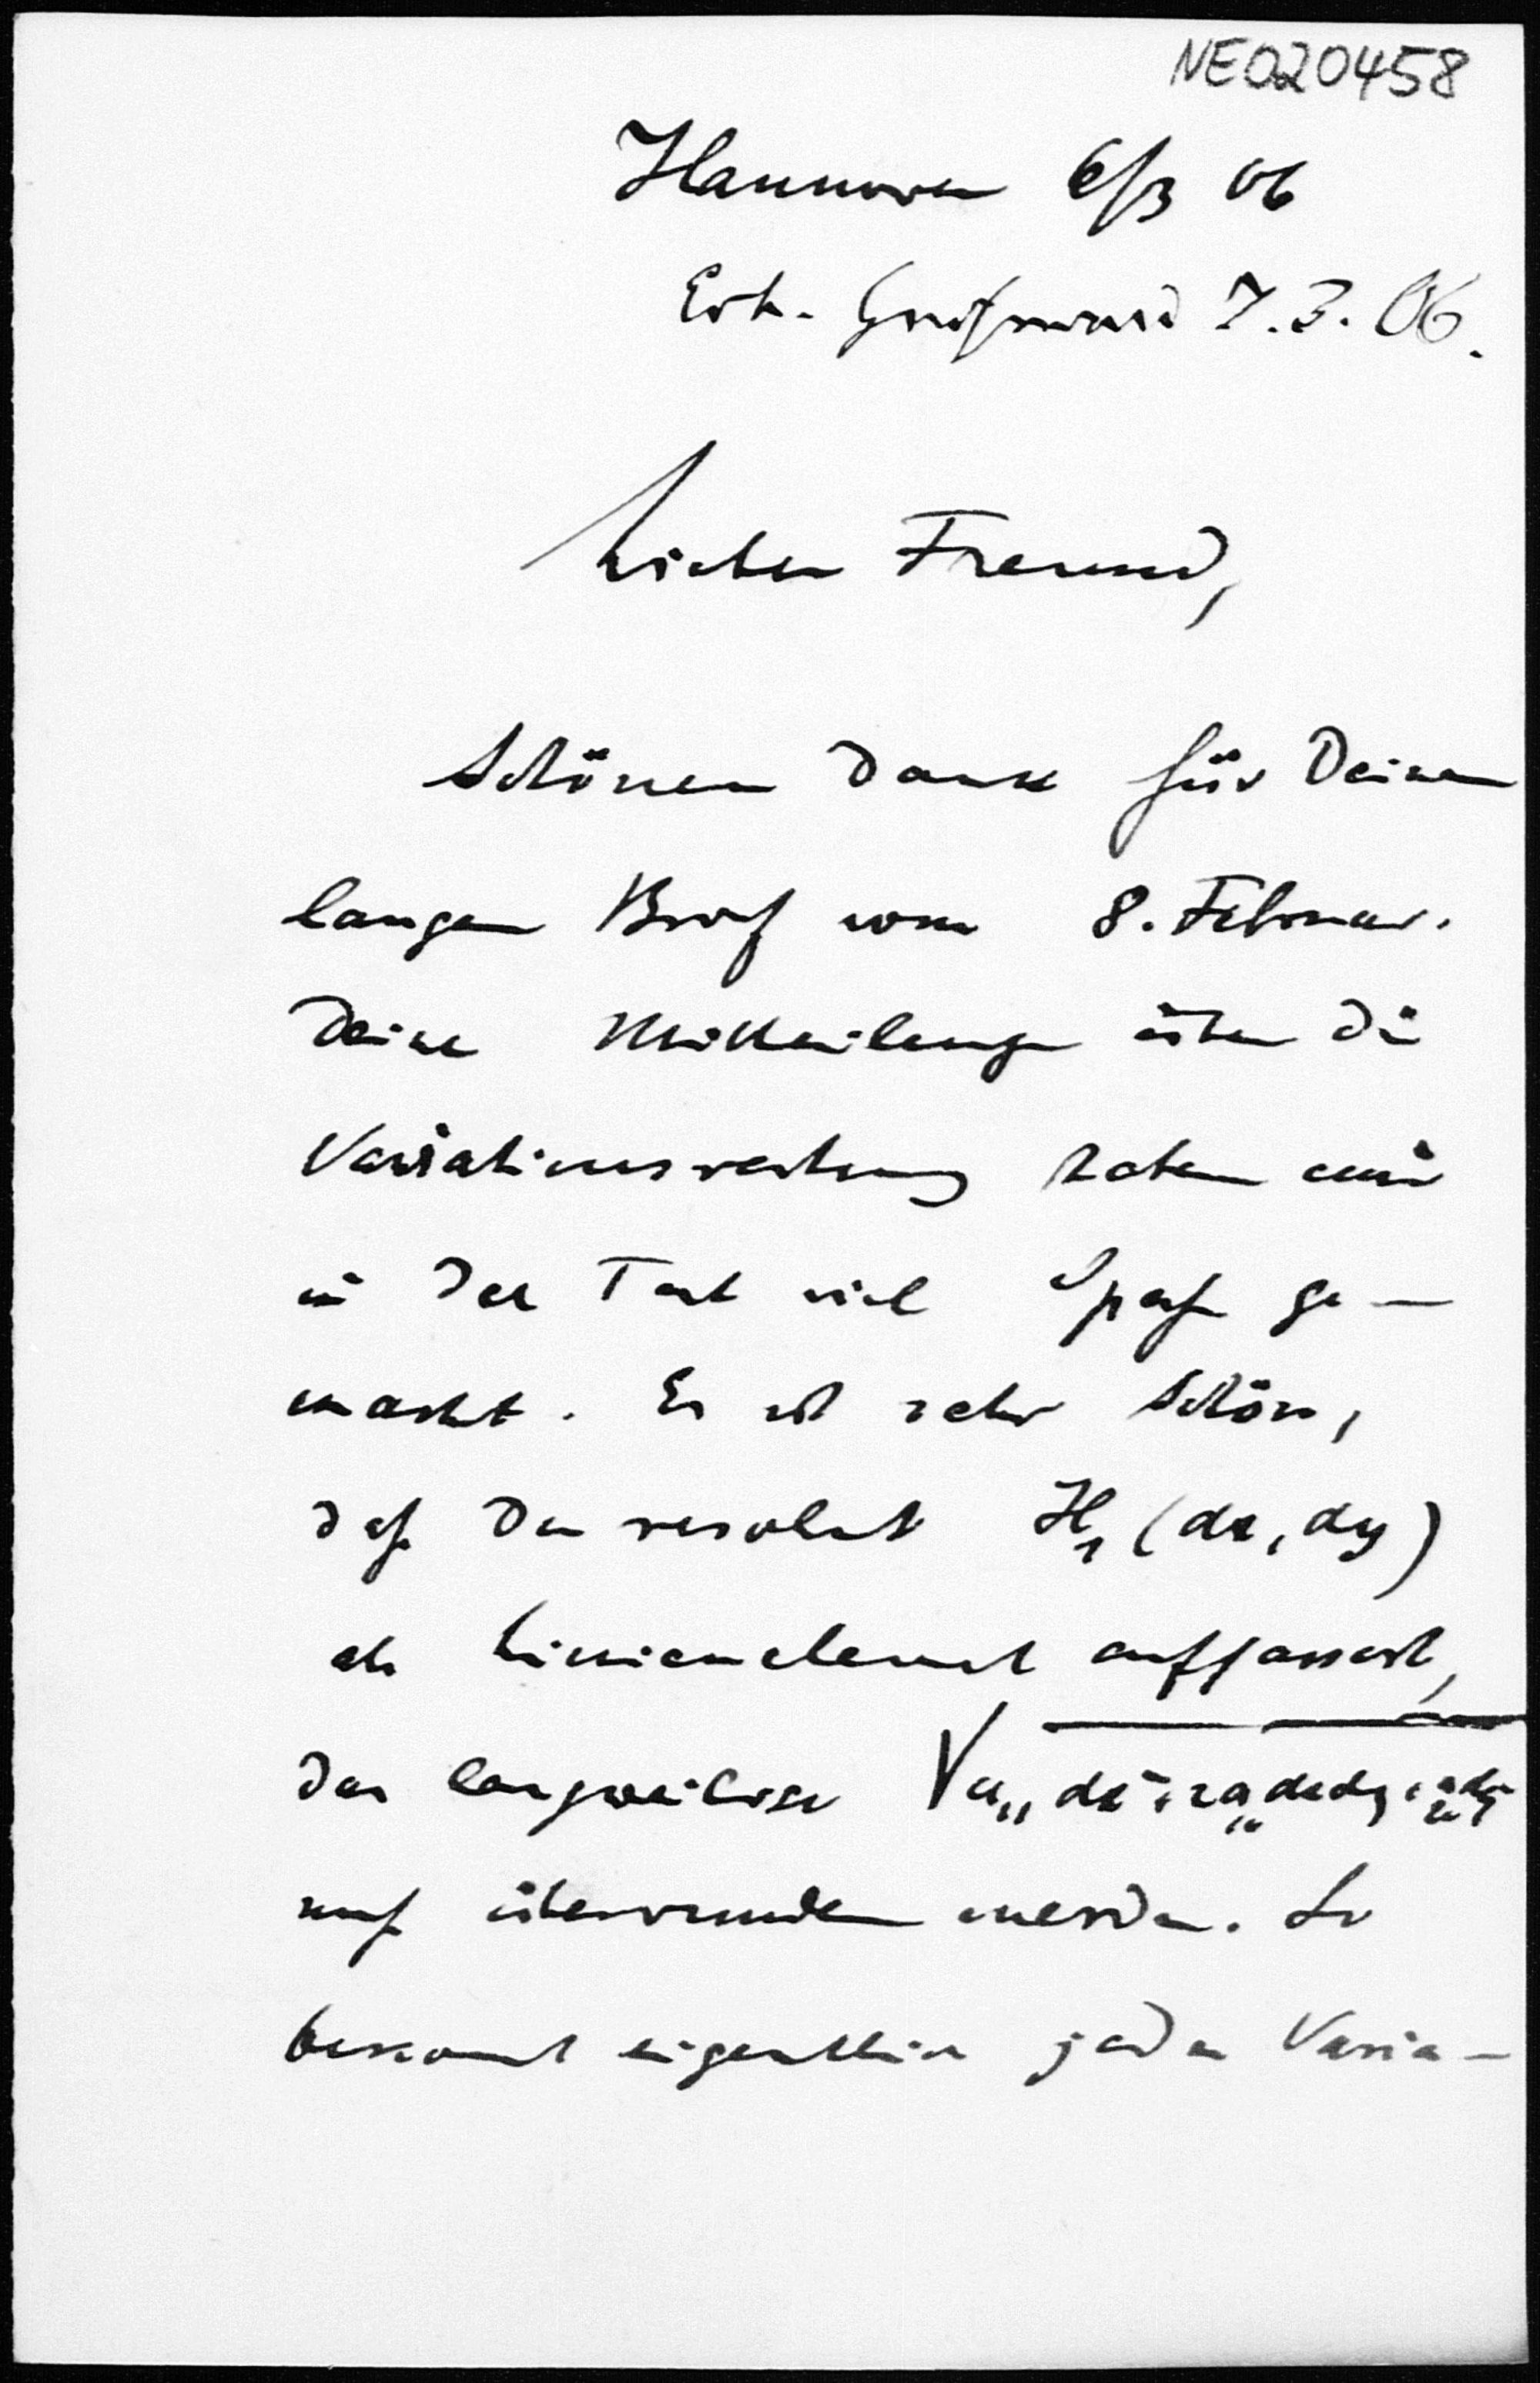 NE020458
Hannover 6/3 06
Erh. Greifswald 7.3.06.
Lieber Freund,
Schönen Dank für Deinen
langen Brief vom 8. Februar.
Deine Mitteilungen über die
Variationsrechnung haben mir
in der Tat viel Spaß ge-
macht. Es ist sehr schön,
daß Du resolut H₁ (dx, dy)
als Linienelement auffassest,
das langweilige √a₁₁ dx² + 2a₁₂ dxdy + a₂₂ dy²
muß überwunden werden. So
bekommt eigentlich jedes Varia-